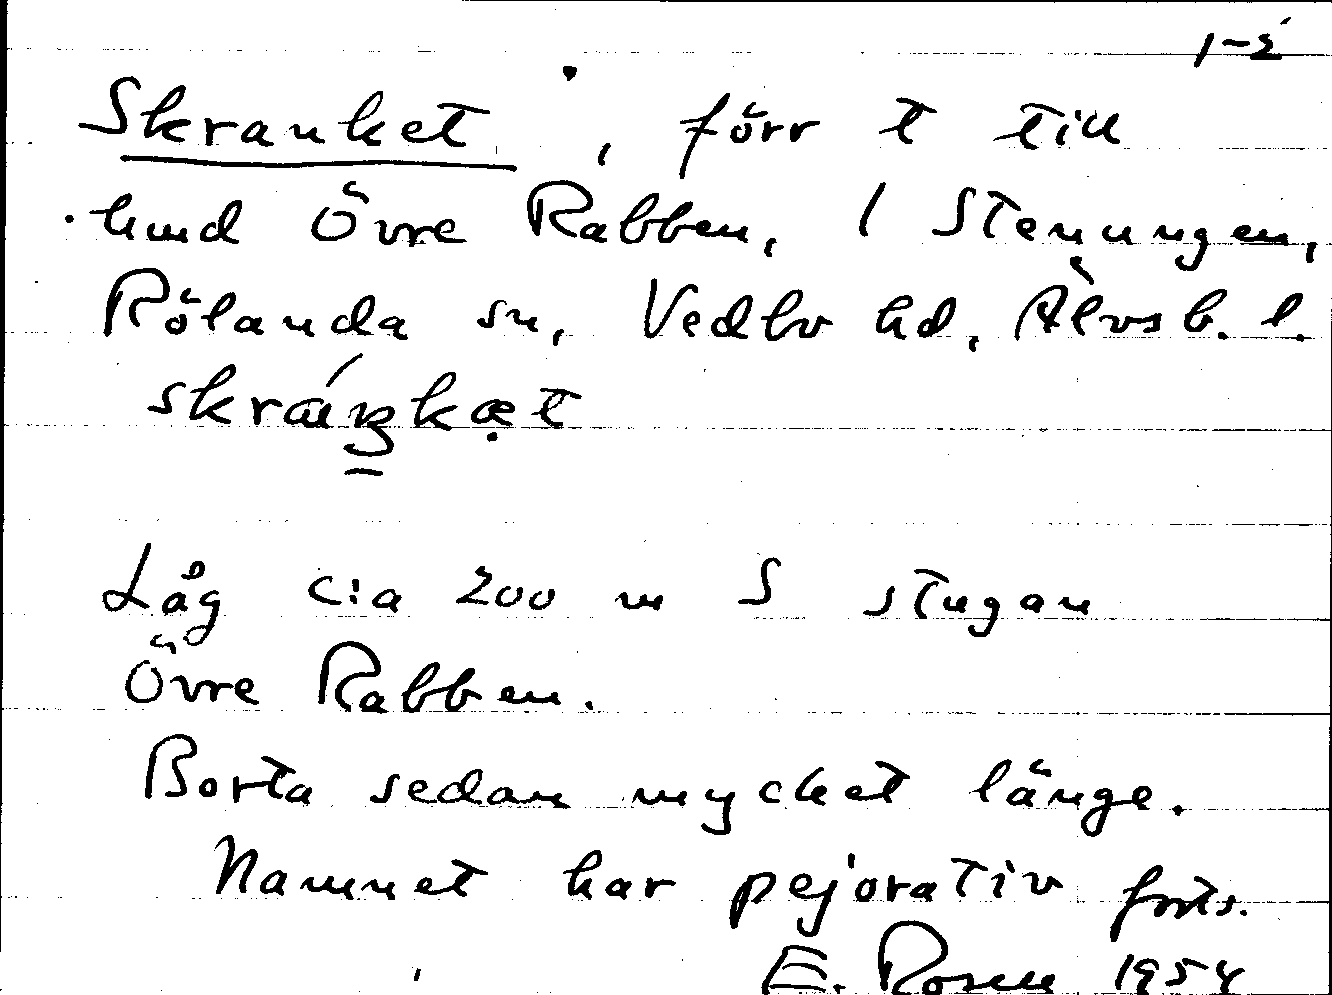 1-2
Skranket, förr t till
hmd Övre Rabben, 1 Stenungen,
Rölanda sn, Vedbo hd, Älvsb. l.
skráŋkæt
Låg c:a 200 m S stugan
Övre Rabben.
Borta sedan mycket länge.
Namnet har pejorativ forts.
E. Rosen 1954